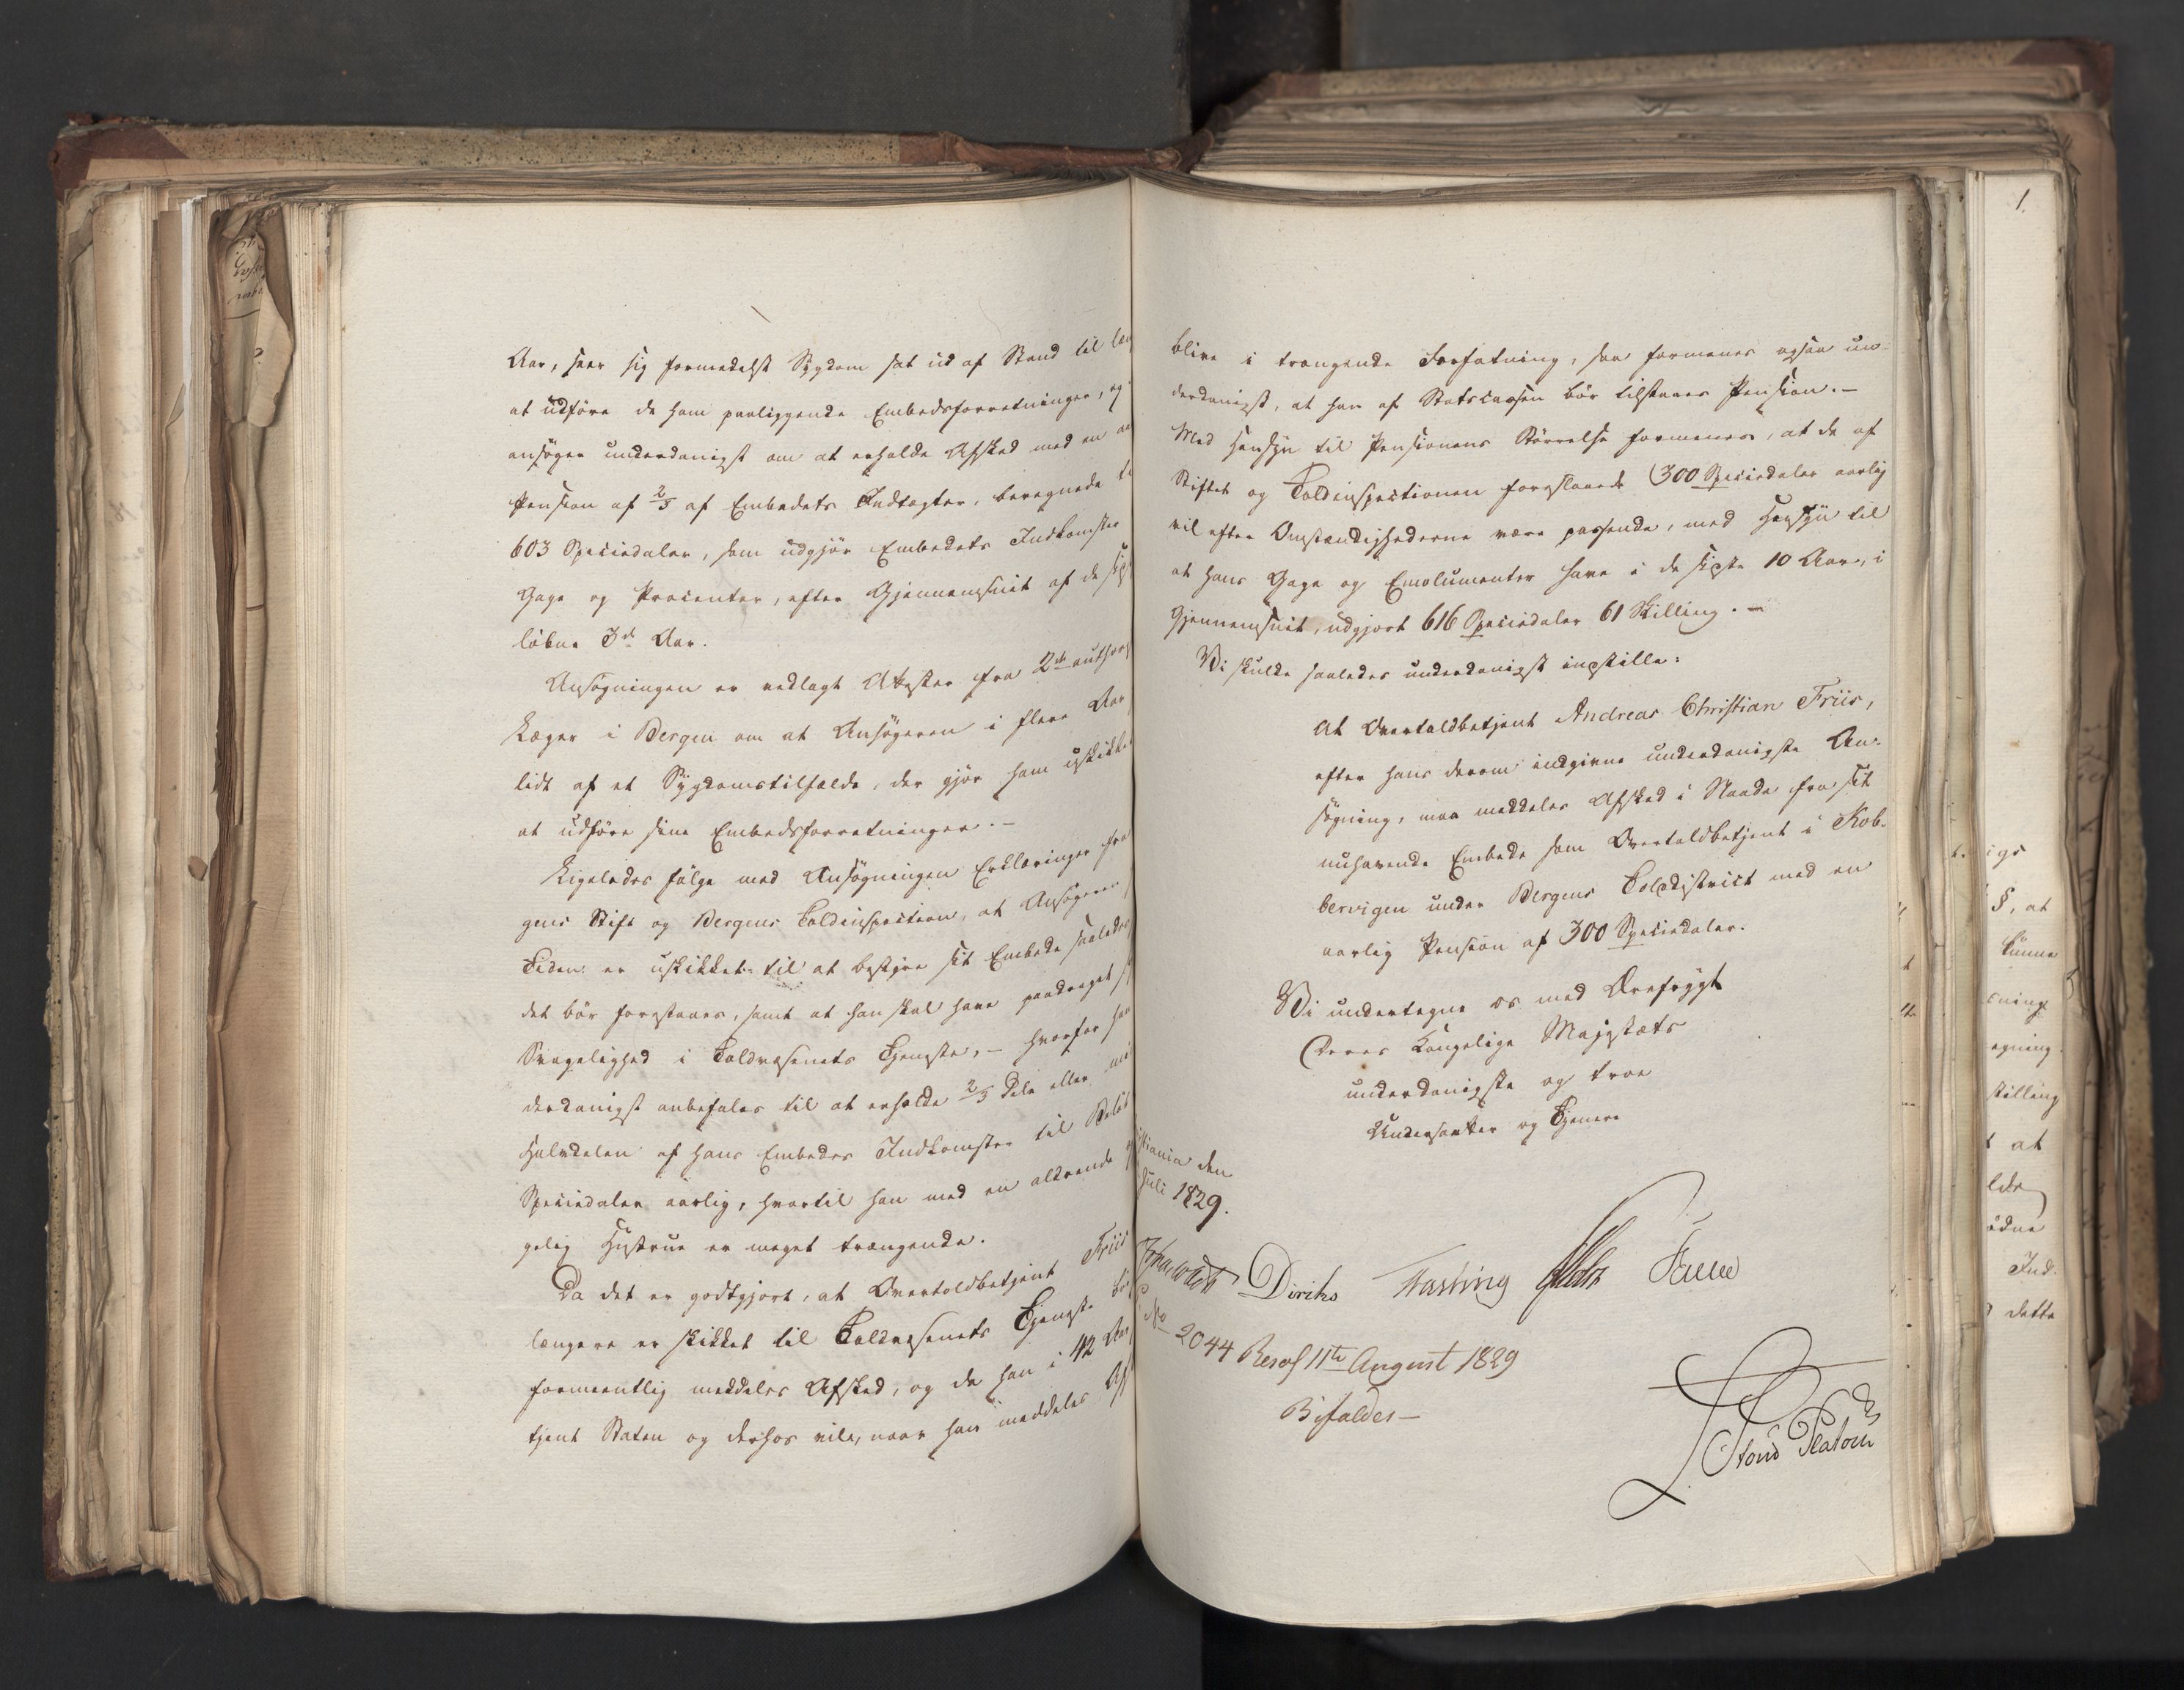 Aar, seer sig formedelst Sygdom sat ud af Stand til læn
at udföre de ham paaliggende Embedsforretninger, og
ansöger underdanigst om at erholde Afsked med en aa
Pension af 2/3 af Embedets Indtægter, beregnede ti
603 Speciedaler, som udgjör Embedets Indkomster
Gage og Procenter, efter Gjennemsnit af de sids
löbne 3de Aar.
Ansögningen er vedlagt Attester fra 2de authori
Læger i Bergen om at Ansögeren i flere Aar
lidt af et Sygdomstilfælde, der gjör ham uskikke
at udföre sine Embedsforretninger.-
Ligeledes fölge med Ansögningen Erklæringer fra
gens Stift og Bergens Toldinspection, at Ansögeren
Tiden er uskikket til at bestyre sit Embede saaledes
det bör forestaaes, samt at han skal have paadraget s
Svagelighed i Toldvæsenets Tjeneste,- hvorfor han
derdanigst anbefales til at erholde 2/3 Dele eller mi
Halvdelen af hans Embedes Indkomster til Belöb
Speciedaler aarlig, hvortil han med en aldrende
gelig Hustrue er meget trængende.
Da det er godtgjort, at Overtoldbetjent Friis
længere er skikket til Toldvæsenets Tjeneste bö
formeentlig meddeles Afsked, og da han i 42 Aar
tjent Staten og derhos vil, naar han meddeles Af
blive i trængende Forfatning, saa formenes ogsaa un-
derdanigst, at han af Statscassen bör tilstaaes Pension.-
Med Hensyn til Pensionens Störrelse formenes, at de af
Stiftet og Toldinspectionen foreslaaede 300 Speciedaler aarlig
vil efter Omstændighederne være passende, med Hensyn til
at hans Gage og Emolumenter have i de sidste 10 Aar, i
Gjennemsnit, udgjort 616 Speciedaler 61 Skilling.-
Vi skulde saaledes underdanigst indstille:
At Overtoldbetjent Andreas Christian Friis,
efter hans derom indgivne underdanigste An-
sögning, maa meddeles Afsked i Naade fra sit
nuhavende Embede som Overtoldbetjent i Kob-
bervigen under Bergens Tolddistrict med en
aarlig Pension af 300 Speciedaler.
Vi undertegne os med Ærefrygt
Deres Kongelige Majestæts
underdanigste og troe
Undersaatter og Tjenere
istiania den
Juli 1829.
Diriks Fasting Holst
No 2044 Resol 11te August 1829
Bifaldes-
1.
igs
§, at
kunne
sning
egning
stilling
t at
lde
Ind-
dette